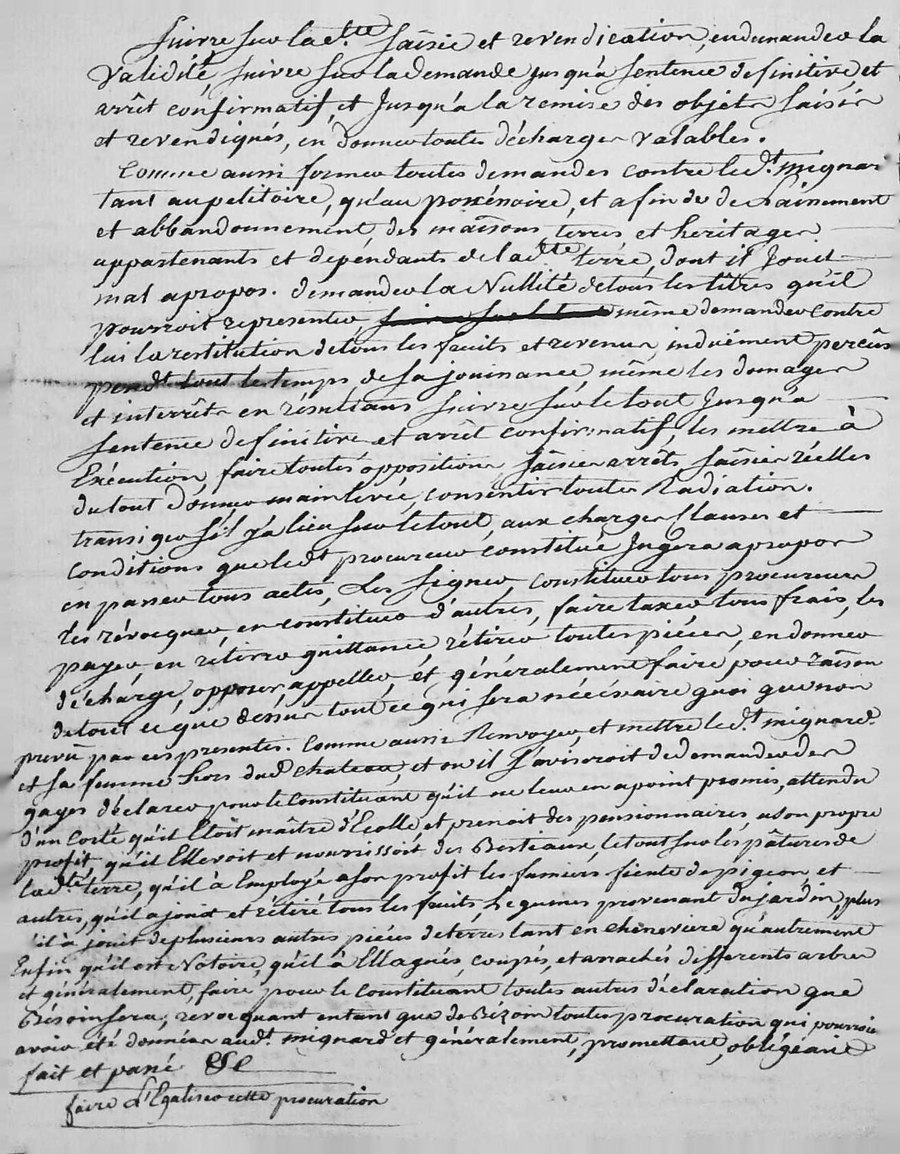 Suivre sur lad.tte saisie et revendication, en demander la
Validité, suivre sur la demande jusqu'a sentence definitive, et
arrêt confirmatif, et jusqu'a la remise des objets saisis
et revendiqués, en donner toutes décharges valables.
Comme aussi former toutes demandes contre led.t mignar
tant au petitoire, qu'au possessoire, et afin de delaissement
et abbandonnement des maisons, terres et heritages
appartenants et dépendants de lad.tte terre dont il jouit
mal apropos. demander la Nullité de tous les titres qu'il
pourroit representer, même demander contre
lui la restitution de tous les fruits et revenus, induëment percûs
pend.t tout le temps de sa jouissance, même les domages
et interrêts en résultans suivre sur le tout jusqu'a
sentence definitive et arrêt confirmatif, les mettre à
Exécution, faire toutes oppositions, saisies arrêts, saisies réelles
du tout donner main levée, consentir toutes Radiation.
transiger s'il y a lieu sur le tout, aux charges Clauses et
conditions que led.t procureur constitué Jugera apropos
en passer tous actes, Les signer, constituer tous procureurs
les révocquer, en constituer d'autres, faire taxer tous frais, les
payer en rétirer quittance, rétirer toutes piéces, en donner
décharge, opposer, appeller et généralement faire pour raison
de tout ce que dessus tout ce qui sera nécéssaire quoi que non
prevû par ces presentes. Comme aussi Renvoyer et mettre led.t mignard
et sa femme hors dud. chateau, et ou il s'aviseroit de demander des
gages déclarer pour le Constituant qu'il ne leur en a point promis, attendu
d'un Costé qu'il Etoit maître d'Ecolle et prenoit des pensionnaires, a son propre
profit, qu'il Ellevoit et nourrissoit des Bestiaux, le tout sur les pâtures de
lad.tte terre, qu'il à Employé a son profit les fumiers fiente de pigeon et
autres, qu'il a jouit et rétiré tous les fruits, Legumes provenant du jardin, plus
'il à jouit de plusieurs autres piéces de terres tant en cheneviere qu'autrement
Enfin qu'il est Notoire, qu'il à Ellagués, coupés, et arrachés differents arbres
et généralement, faire, pour le Constituant toutes autres déclaration que
Bésoin sera; revocquant entant que de Bézoin toutes procuration qui pourroie
avoir été données aud.t mignard et généralement, promettant, obligeant
fait et passé
faire L'Egaliser cette procuration